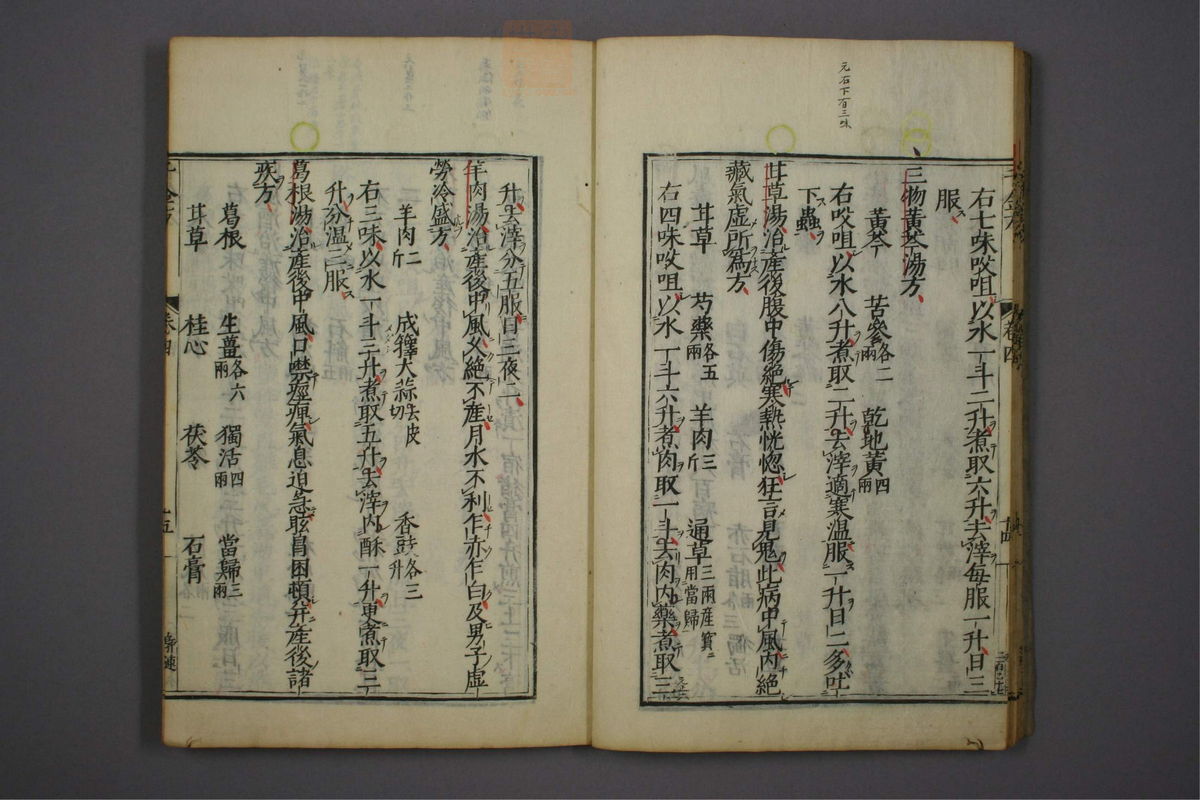 元石下有三味
右七味㕮咀以水一斗二升煮取六升去滓每服一升日三
服
三物黃芩湯方
黃芩 苦參各二兩 乾地黃四兩
右㕮咀以水八升煮取二升去滓適寒溫服一升日二多吐
下蟲
甘草湯治產後腹中傷絕寒熱恍惚狂言見鬼此病中風內絕
藏氣虛所為方
甘草 芍藥各五兩 羊肉三斤 通草三兩產寶用當歸
右四味㕮咀以水一斗六升煮肉取一斗去肉內藥煮取三
升去滓分五服日三夜二
羊肉湯治產後中風久絕不產月水不利乍赤乍白及男子虛
勞冷盛方
羊肉二斤 成擇大蒜去皮切 香豉各三升
右三味以水一斗三升煮取五升去滓內酥一升更煮取三
升分溫三服
葛根湯治產後中風口噤痙痹氣息迫急眩冒困頓并產後諸
疾方
葛根 生薑各六兩 獨活四兩 當歸三兩
甘草 桂心 茯苓 石膏
卷四